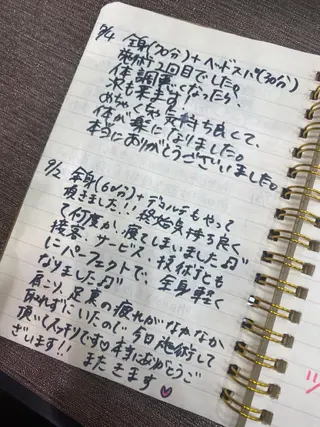 9/4 全身(70分)+ヘッドスパ(30分)
施術2回目でした。
体調悪くなったら、
又来ます!
めちゃくちゃ気持ち良くて、
体が楽になりました。
本当にありがとうございました。
9/5 全身(60分)+デコルテもやって
頂きました!!終始気持ち良く
て何度か寝てしまいました
接客・サービス、技術とも
にパーフェクトで、全身軽く
なりました
肩こり、足裏の疲れがなかなか
取れずにいたので今日施術して
頂いてスッキリです♡本当にありがとうご
ざいます!!
またきます♡